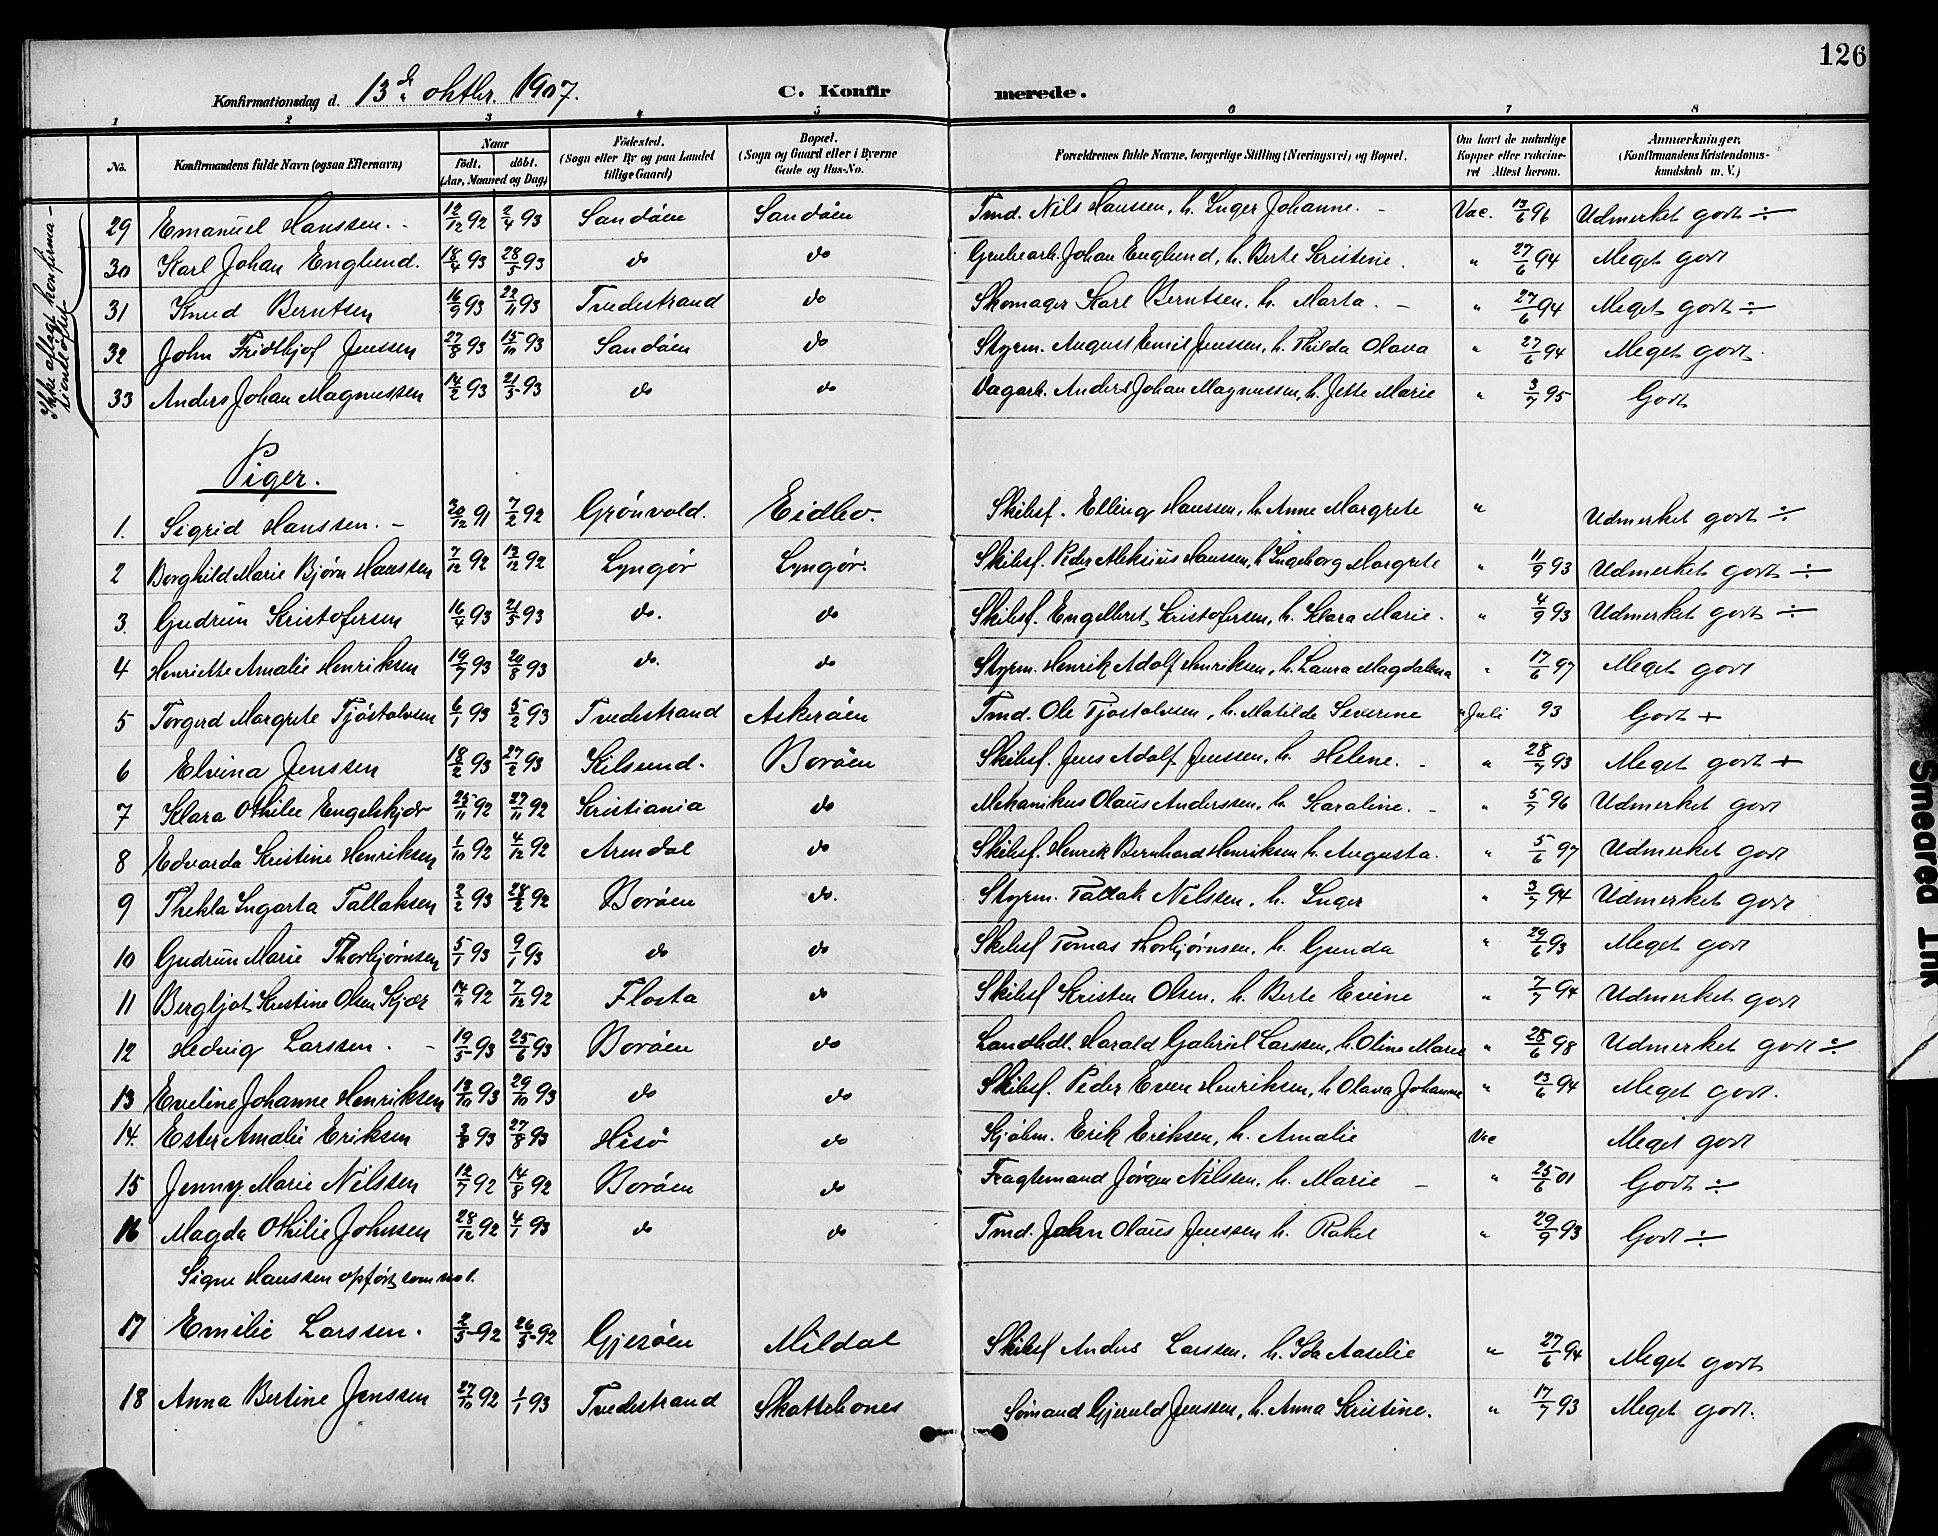 126
Konfirmationsdag d. 13de oktbr. 1907. C. Konfirmerede.
1 2 3 4 5 6 7 8
No. Konfirmandens fulde Navn (ogsaa Efternavn) Naar födt. döbt. (Aar, Maaned og Dag) Födested. (Sogn eller By og paa Landet tillige Gaard) Bopæl. (Sogn og Gaard eller i Byerne Gade og Hus-No. Forældrenes fulde Navne, borgerlige Stilling (Næringsvei) og Bopæl. Om havt de naturlige Kopper eller vaccineret Attest herom. Anmærkninger. (Konfirmandens Kristendomskundskab m. V.)
Ikke aflagt konfirmationslöftet
29 Emanuel Hanssen. 12/12 92 2/4 93 Sandöen Sandöen Tmd. Nils Hanssen, h. Inger Johanne. Vac. 13/6 96 Udmerket godt ÷
30 Karl Johan Englund. 18/4 93 28/5 93 do do Grubearb. Johan Englund, h. Berte Kristine. " 27/6 94 Meget godt
31 Knud Berntsen 16/9 93 22/11 93 Tvedestrand do Skomager Karl Berntsen, h. Marta. " 27/6 94 Meget godt ÷
32 John Fridthjof Jenssen 27/8 93 15/10 93 Sandöen do Styrm. August Emil Jenssen, h. Thilda Olava " 27/6 94 Meget godt.
33 Anders Johan Magnussen 14/2 93 21/5 93 do do Dagarb. Anders Johan Magnussen, h. Jette Marie " 3/7 95 Godt
Piger.
1. Sigrid Hanssen. 20/12 91 7/2 92 Grönvold. Eidbo. Skibsf. Elling Hanssen, h. Anne Margrete " Udmerket godt ÷
2 Borghild Marie Bjørn Hanssen 7/12 92 13/12 92 Lyngör Lyngör. Skibsf. Peder Aleksius Hanssen, h Ingeborg Margrete " 11/9 93 Udmerket godt ÷
3. Gudrun Kristofersen 16/4 93 21/5 93 do. do Skibsf. Engelbret Kristofersen, h. Klara Marie. " 4/9 93 Udmerket godt ÷
4 Henriette Amalie Henriksen 19/7 93 20/8 93 do. do Styrm. Henrik Adolf Henriksen, h. Laura Magdalena " 17/6 97 Meget godt
5 Torgerd Margrete Tjöstolvsen 6/1 93 5/2 93 Tvedestrand Askeröen Tmd. Ole Tjostolvsen, h. Matilde Severine " Juli 93 Godt +
6 Elvina Jenssen 18/2 93 27/2 93 Kilsund. Boröen Skibsf. Jens Adolf Jenssen, h. Helene. " 28/7 93 Meget godt +
7 Klara Othilie Engelskjær 25/11 92 27/11 92 Kristiania do Mekanikus Olaus Anderssen, h. Karaline. " 5/7 96 Udmerket godt
8 Edvarda Kristine Henriksen 1/10 92 4/12 92 Arendal do Skibsf. Henrik Bernhard Henriksen h. Augusta. " 5/6 97 Udmerket godt
9 Thekla Ingarta Tallaksen 2/2 93 28/2 92 Boröen do. Styrm. Tallak Nilssen, h. Inger " 3/7 94 Udmerket godt
10 Gudrun Marie Thorbjørnsen 5/1 93 9/1 93 do do Skibsf Tomas Thorbjørnsen, h. Gunda " 29/6 93 Meget godt
11 Bergljot Kristine Olsen Kjær 14/11 92 7/12 92 Flosta do Skibsf Kristen Olsen, h. Berte Evine " 7/7 94 Udmerket godt
12 Hedvig Larssen. 19/5 93 25/6 93 Boröen do Landhdl. Harald Gabriel Larssen, h. Oline Marie " 28/6 98 Udmerket godt ÷
13 Eveline Johanne Henriksen 12/10 93 29/10 93 do do Skibsf. Peder Even Henriksen, h Olava Johanne " 13/6 94 Meget godt.
14. Ester Amalie Eriksen 3/8 93 27/8 93 Hisö do Kjöbm. Erik Eriksen, h. Amalie Vac Meget godt
15 Jenny Marie Nilssen 12/7 92 14/8 92 Boröen do Fragtemand Jörgen Nilssen, h. Marie " 25/6 01 Godt ÷
16 Magda Othilie Johnsen 28/12 92 4/1 93 do do Tmd. John Olaus Jenssen h. Rakel " 29/9 93 Godt ÷
Signe Hanssen opfört som no 1.
17 Emilie Larssen. 2/5 92 26/5 92 Gjeröen Mildal Skibsf Anders Larssen, h. Ida Aaselie " 27/6 94 Meget godt
18 Anna Bertine Jenssen 27/10 92 1/1 93 Tvedestrand Skottebones Sömand Gjeruld Jenssen, h. Anna Kristine. " 17/7 93 Meget godt.
Smeared Ink